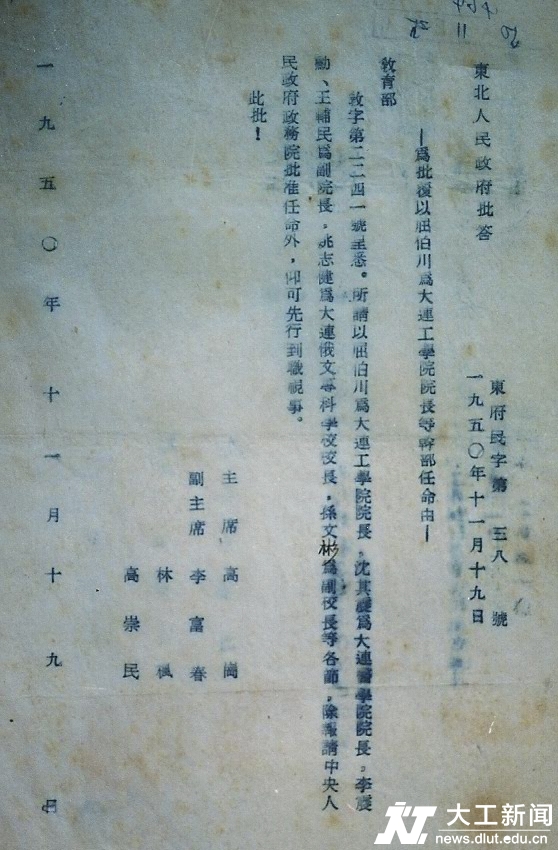 東北人民政府批答
東府民字第 三八 號
一九五〇年十一月十九日
—爲批復以屈伯川爲大連工學院院長等幹部任命由—
敎育部
敎字第二二四一號呈悉。所請以屈伯川爲大連工學院院長，沈其震爲大連醫學院院長，李震
勳、王輔民爲副院長，姚志健爲大連俄文專科學校校長，孫文彬爲副校長等各節，除報請中央人
民政府政務院批准任命外，仰可先行到職視事。
此批！
主席 高崗
副主席 李富春
林楓
高崇民
一九五〇年十一月十九日
大工新闻
www.news.dlut.edu.cn